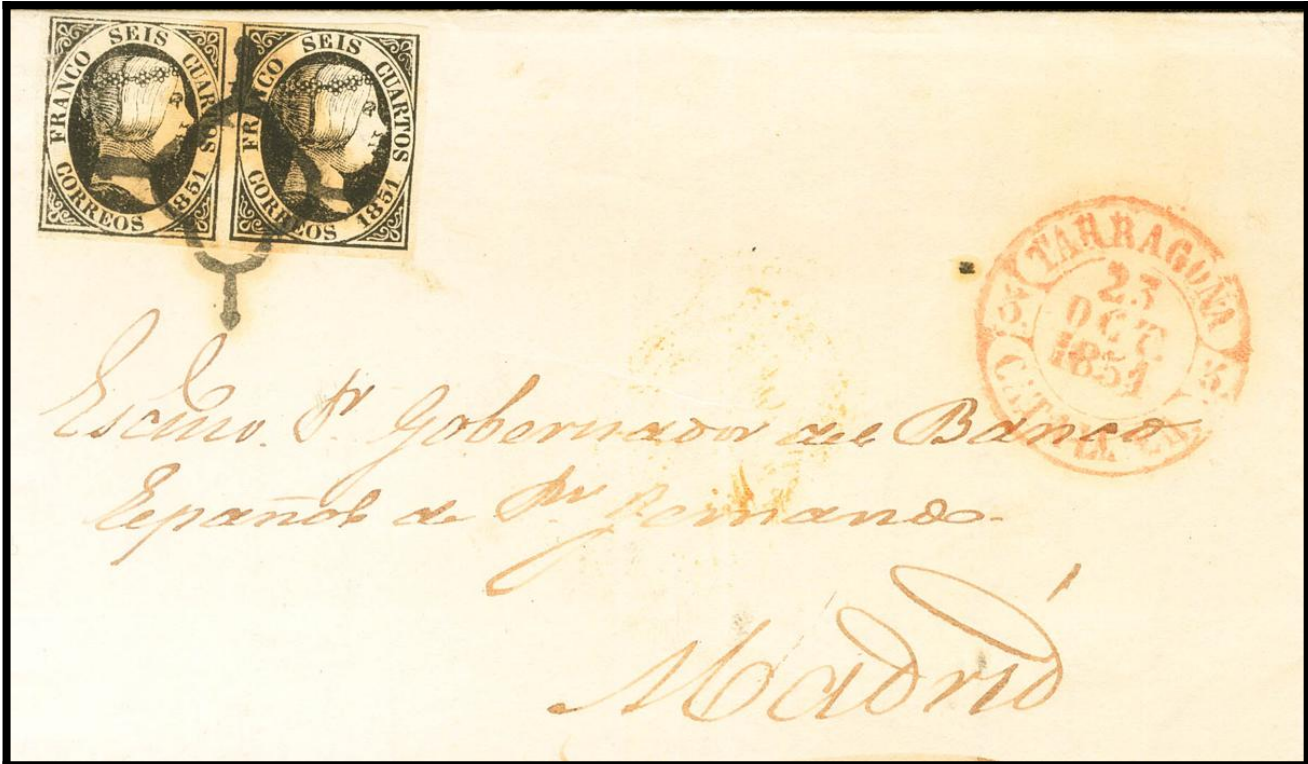 FRANCO SEIS CUARTOS
CORREOS 1851
FRANCO SEIS CUARTOS
CORREOS 1851
TARRAGONA
23
OCT.
1851
Escmo. Sr. Gobernador del Banco
Español de Sn. Fernando.
Madrid